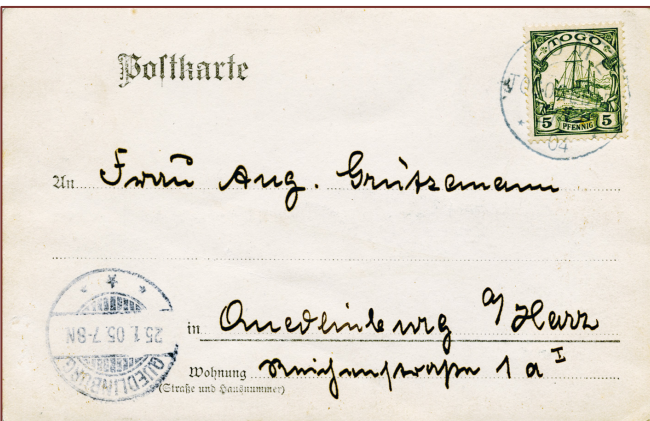 Postkarte
TOGO
5 PFENNIG 5
04
An Frau Aug. Grützemann
in Quedlinburg a/Harz
Wohnung Reichenstraße 1 a I
(Straße und Hausnummer)
25.1.05.7-8N
QUEDLINBURG